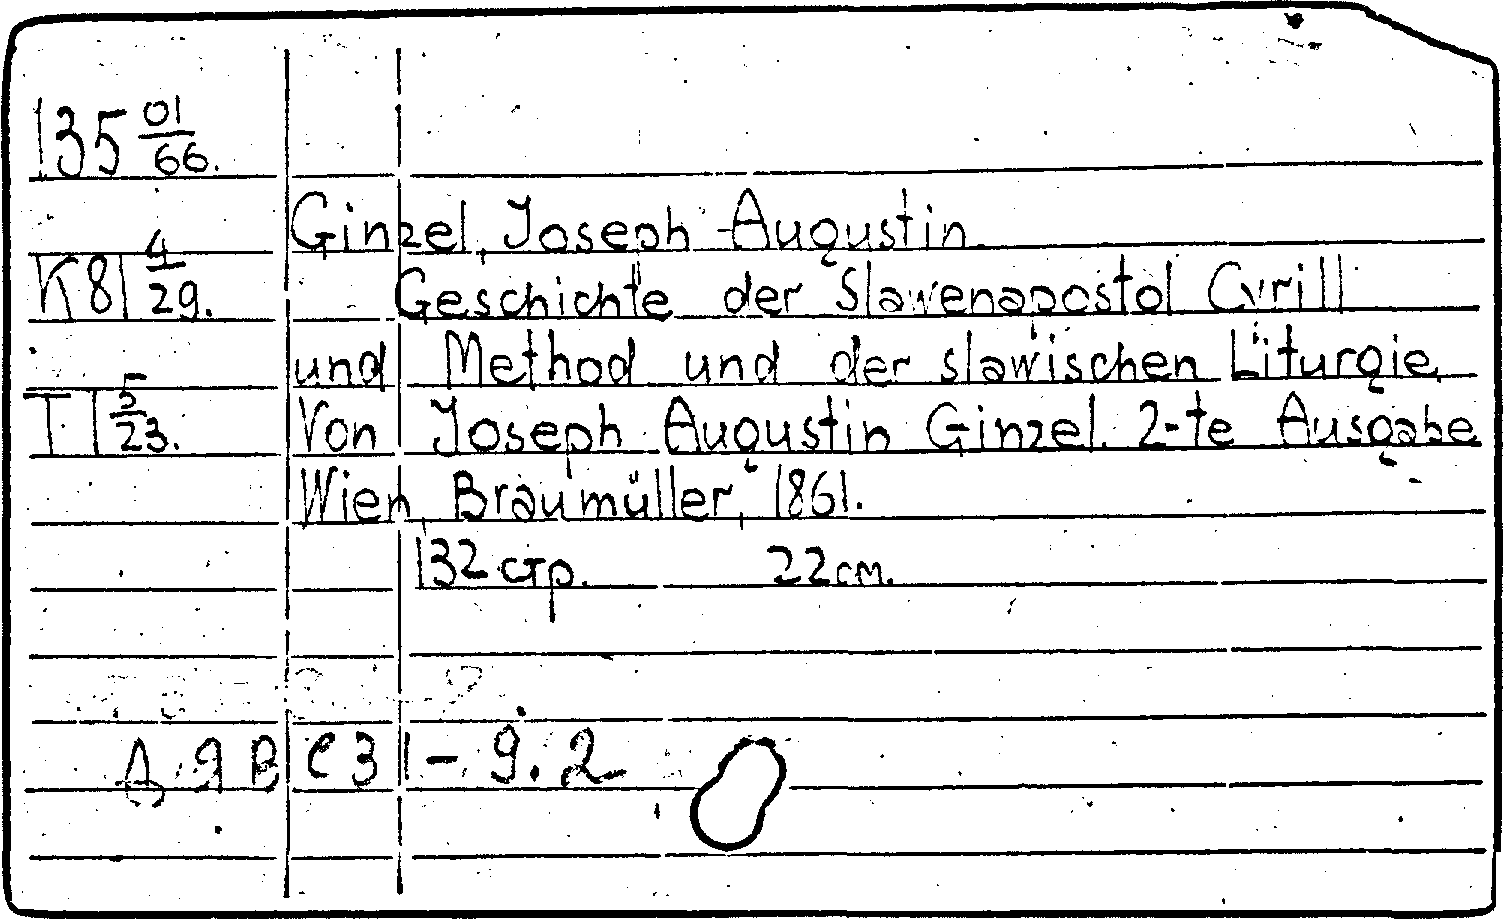 135 01/66.
Ginzel, Joseph Augustin.
K81 4/29.
Geschichte der Slawenapostol Cyrill
und Method und der slawischen Liturgie,
T1 5/23.
Von Joseph Augustin Ginzel. 2-te Ausgabe
Wien, Braumüller, 1861.
132 стр. 22 см.
31-9.2